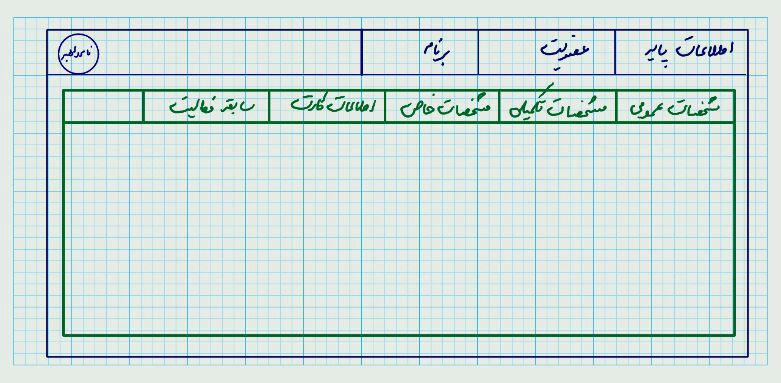 اطلاعات پایه عضویت برنامه نام کاربر
مشخصات عمومی مشخصات تکمیلی مشخصات خاص اطلاعات کارت سابقه فعالیت